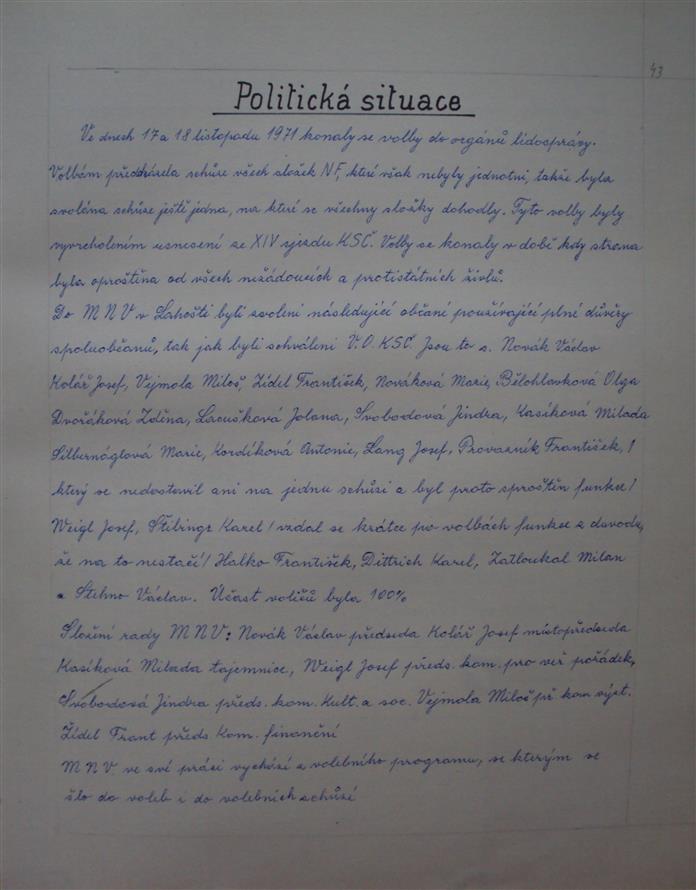 43
Politická situace
Ve dnech 17 a 18 listopadu 1971 konaly se volby do orgánů lidosprávy.
Volbám předcházela schůze všech složek NF, které však nebyly jednotni, takže byla
svolána schůze ještě jedna, na které se všechny složky dohodly. Tyto volby byly
vyvrcholením usnesení ze XIV sjezdu KSČ. Volby se konaly v době kdy strana
byla oproštěna od všech nežádoucích a protistátních živlů.
Do MNV v Lahošti byli zvoleni následující občani používající plné důvěry
spoluobčanů, tak jak byli schváleni V.O. KSČ. Jsou to s. Novák Václav
Kolář Josef, Vejmola Miloš, Žídel František, Nováková Marie, Bělohlavková Olga
Dvořáková Zdena, Lacušková Jolana, Svobodová Jindra, Kasíková Milada
Silbernáglová Marie, Kordíková Antonie, Lang Josef, Provazník František, /
který se nedostavil ani na jednu schůzi a byl proto sproštěn funkce/
Weigl Josef, Štibingr Karel / vzdal se krátce po volbách funkce z davodu,
že na to nestačí/ Halko František, Dittrich Karel, Zatloukal Milan
a Stehno Václav. Účast voličů byla 100%
Složení rady MNV: Novák Václav předseda Kolář Josef místopředseda
Kasíková Milada tajemnice, Weigl Josef předs. kom. pro veř pořádek,
Svobodová Jindra předs. kom. Kult. a soc. Vejmola Miloš př kom výst.
Žídel Frant předs Kom. finanční
MNV ve své práci vychází z volebního programu, se kterým se
šlo do voleb i do volebních schůzí